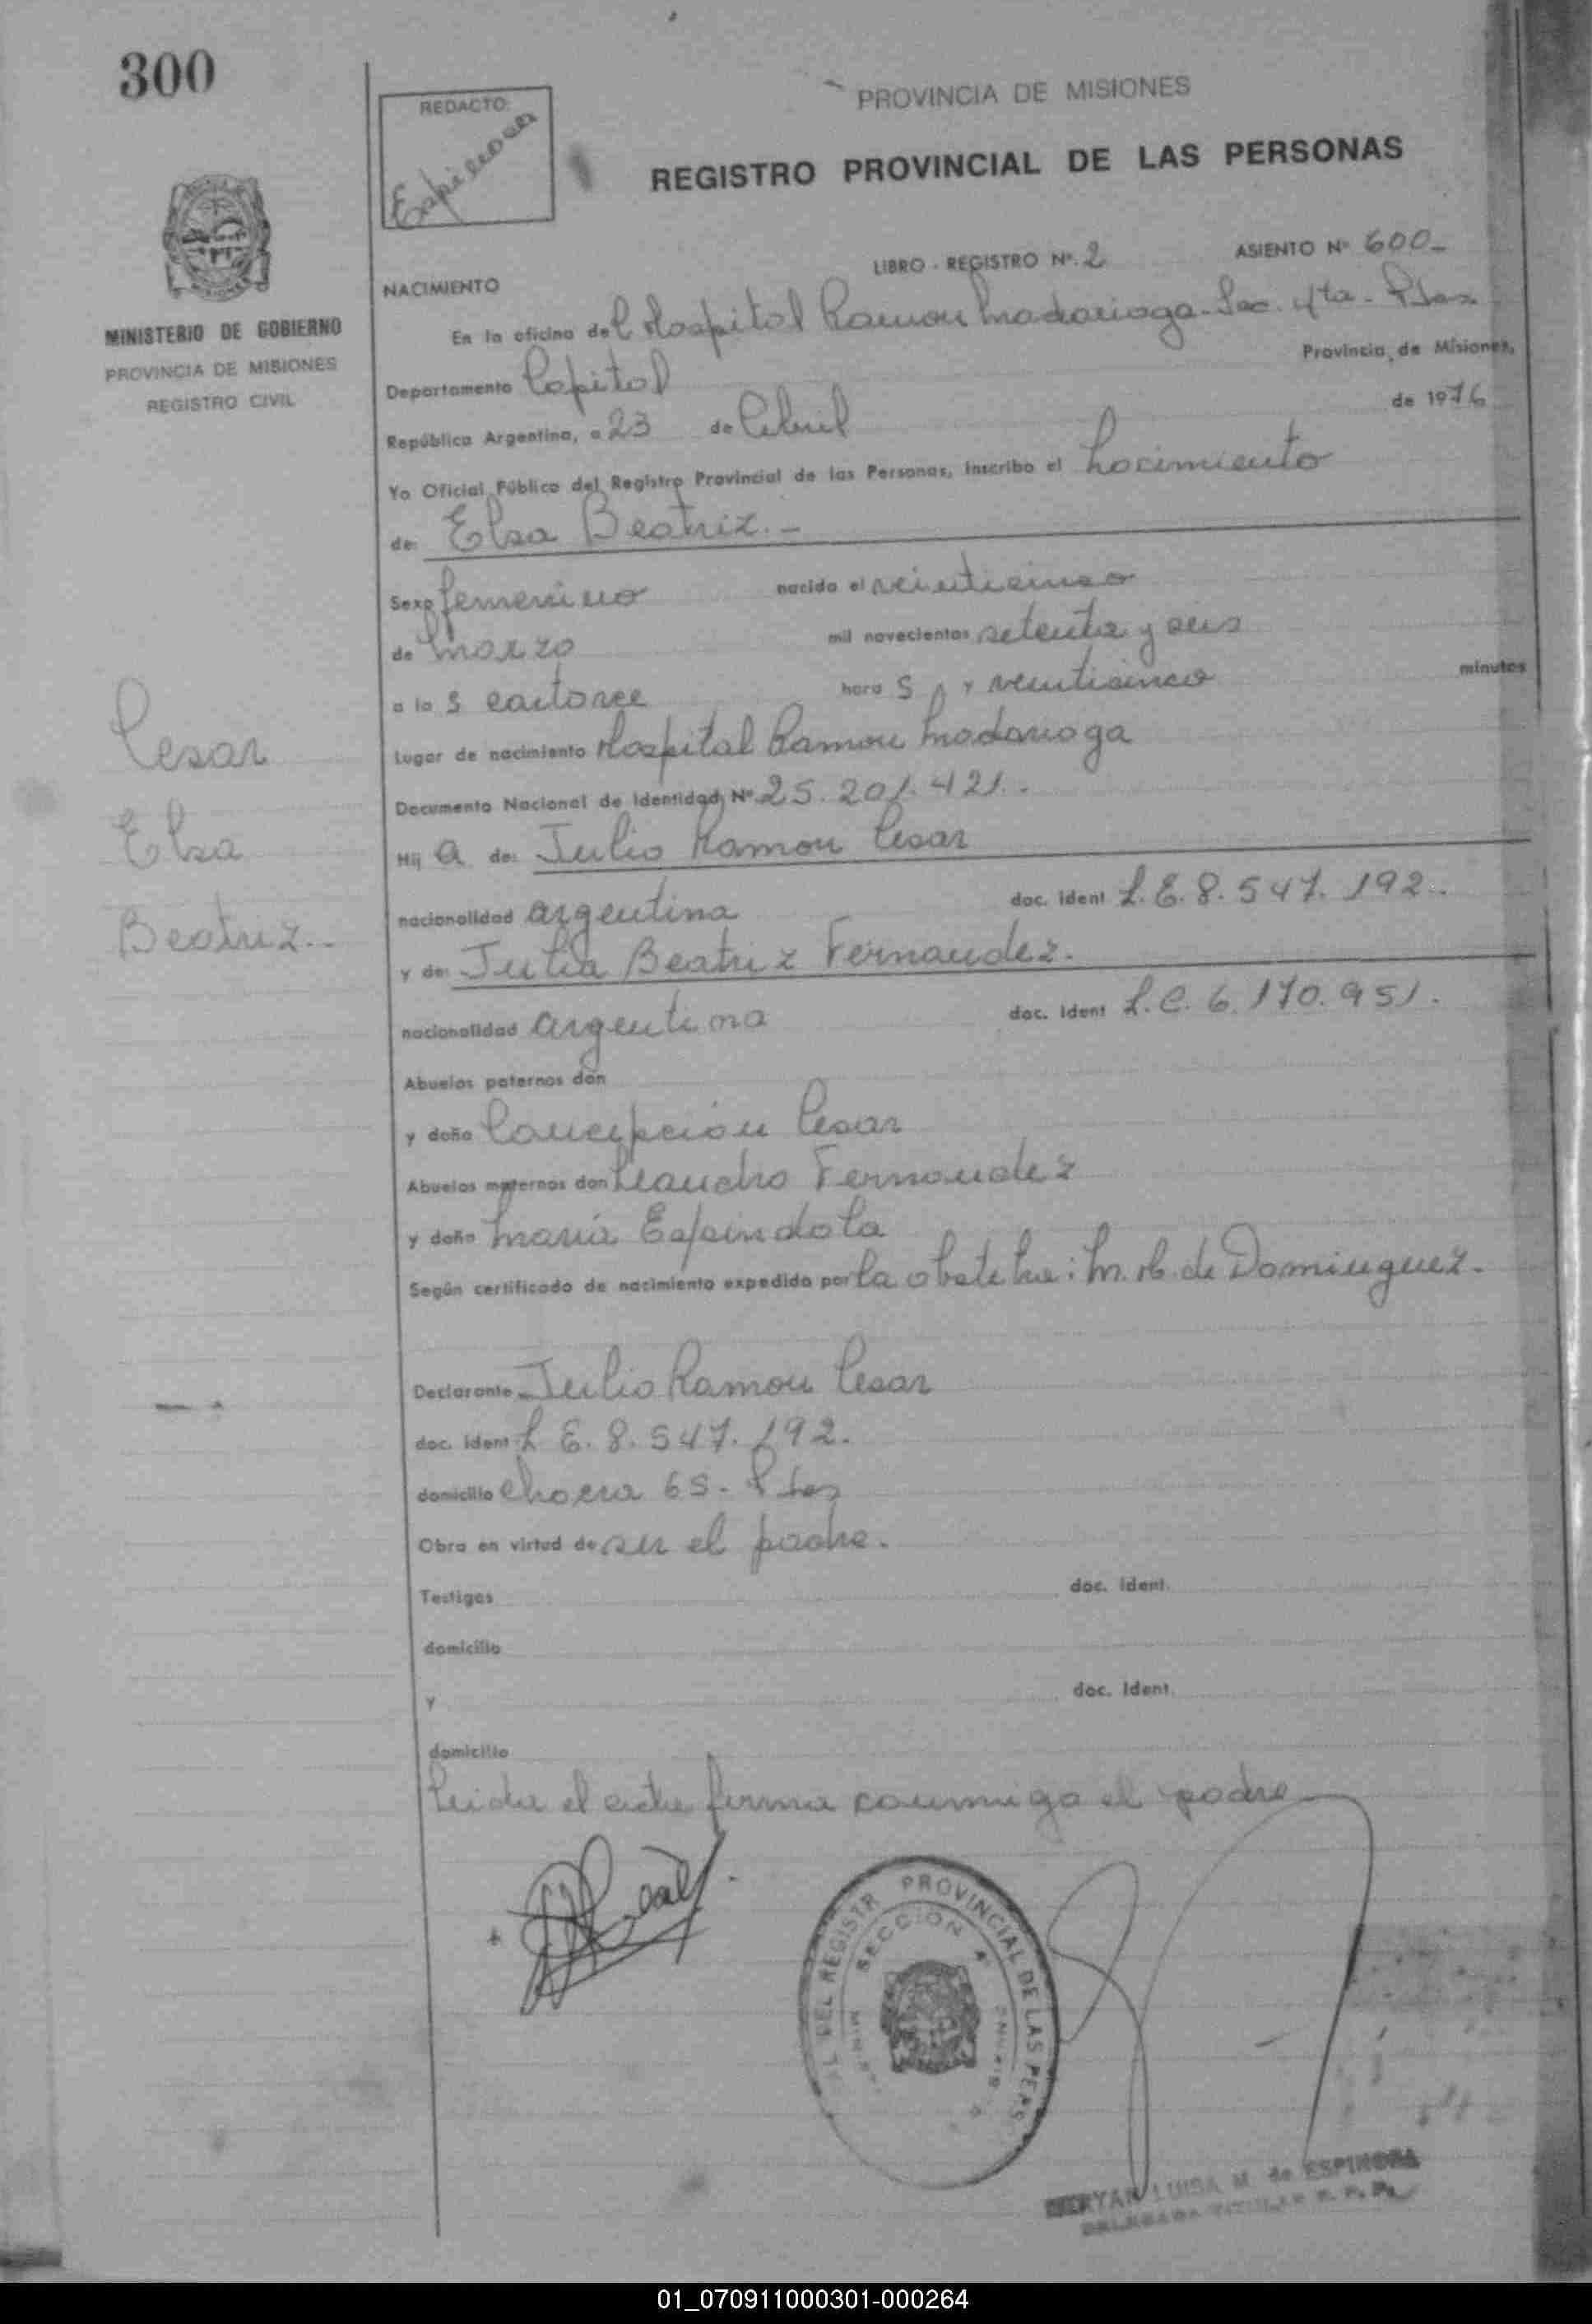 300
REDACTO:
Espinosa
PROVINCIA DE MISIONES
REGISTRO PROVINCIAL DE LAS PERSONAS
MINISTERIO DE GOBIERNO
PROVINCIA DE MISIONES
REGISTRO CIVIL
LIBRO - REGISTRO Nº. 2 ASIENTO Nº 600-
NACIMIENTO
En la oficina del Hospital Ramon Madariaga-Sec. 4ta - Pdas
Departamento Capital Provincia de Misiones,
República Argentina, a 23 de Abril de 1976
Yo Oficial Público del Registro Provincial de las Personas, inscribo el Nacimiento
de: Elsa Beatriz.-
Sexo femenino nacido el veinticinco
de Marzo mil novecientos setenta y seis
a la s catorce hora s y veinticinco minutos
Lugar de nacimiento Hospital Ramon Madariaga
Documento Nacional de Identidad Nº 25.201.421.
Hij a de: Julio Ramon Cesar
nacionalidad argentina doc. ident L.E. 8.547.192.
y de: Julia Beatriz Fernandez.
nacionalidad argentina doc. ident L.C. 6.170.951.
Abuelos paternos don
y doña Concepción Cesar
Abuelos maternos don Leandro Fernandez
y doña Maria Espindola
Según certificado de nacimiento expedido por la obstetra: M. H. de Dominguez.
Declarante Julio Ramon Cesar
doc. ident L E. 8.547.192.
domicilio Chacra 65 - Pdas
Obra en virtud de ser el padre.
Testigos doc. ident.
domicilio
y doc. ident.
domicilio
Leida el acta firma conmigo el padre
Cesar
Elsa
Beatriz.-
PROVINCIAL DE LAS PERS
DEL REGISTR
SECCION 4ª
LUISA M. de ESPINOSA
DELEGADA TITULAR R. P. P.
01_070911000301-000264